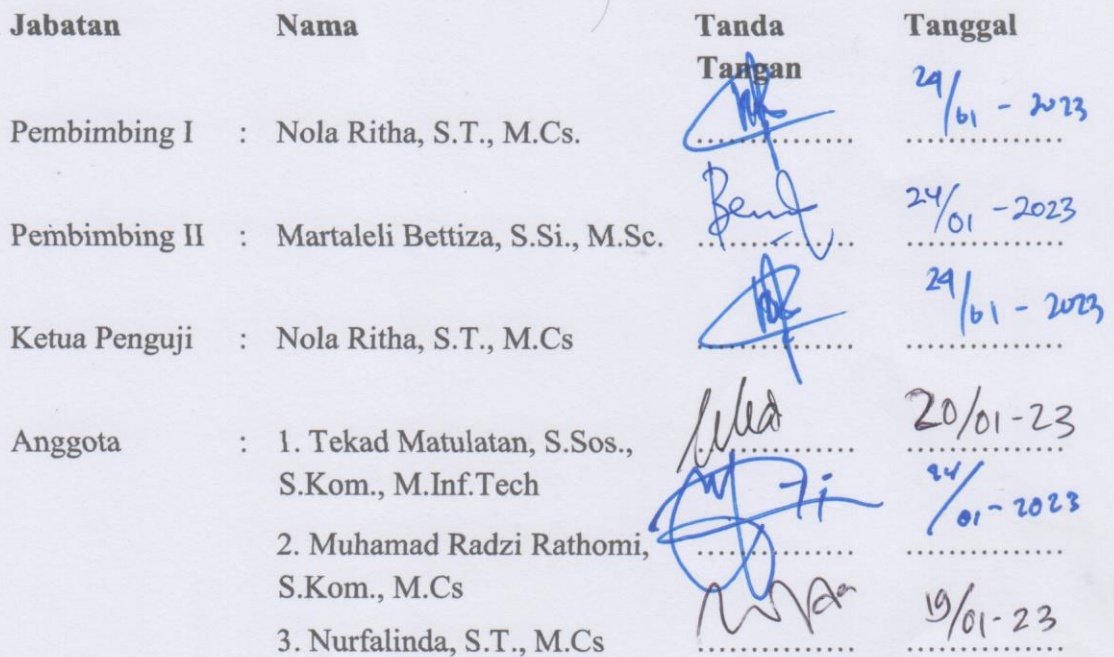 Jabatan Nama Tanda Tanggal
Tangan
24/01 - 2023
Pembimbing I : Nola Ritha, S.T., M.Cs. ............... ...............
24/01 - 2023
Pembimbing II : Martaleli Bettiza, S.Si., M.Sc. ............... ...............
24/01 - 2023
Ketua Penguji : Nola Ritha, S.T., M.Cs ............... ...............
20/01-23
Anggota : 1. Tekad Matulatan, S.Sos., ............... ...............
S.Kom., M.Inf.Tech
24/01-2023
2. Muhamad Radzi Rathomi, ............... ...............
S.Kom., M.Cs
19/01-23
3. Nurfalinda, S.T., M.Cs ............... ...............